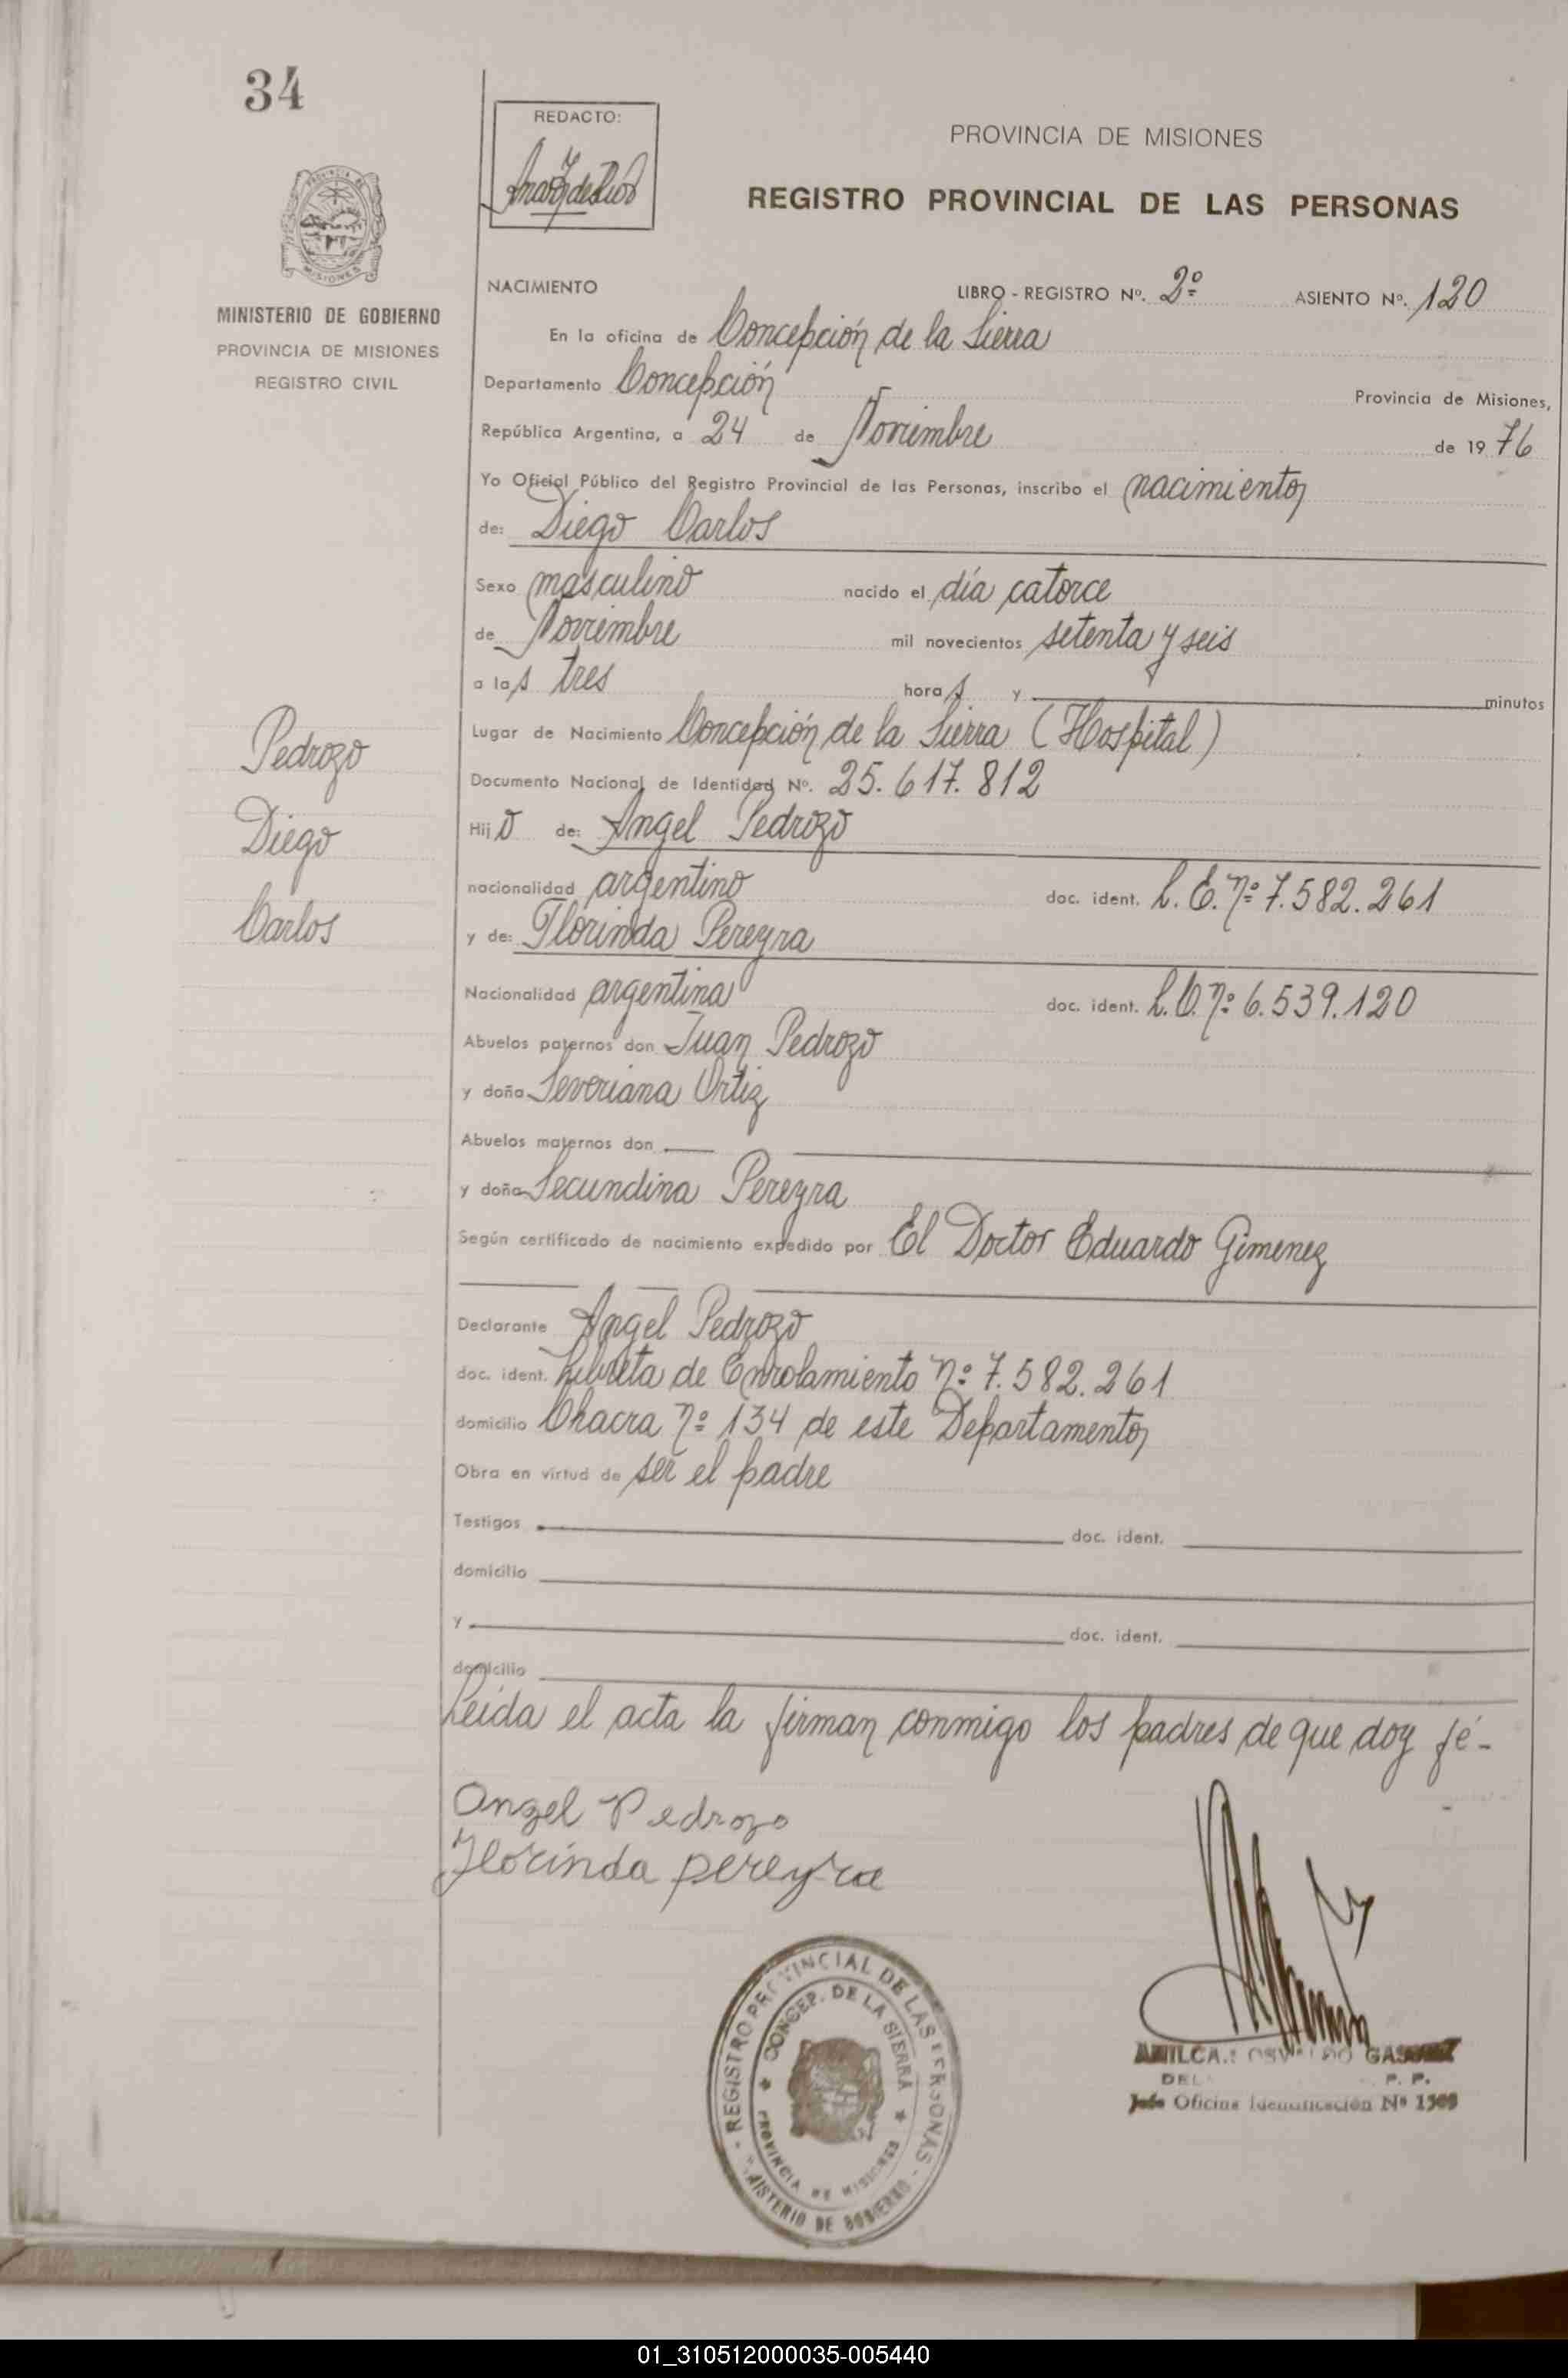 34
REDACTO:
PROVINCIA DE MISIONES
REGISTRO PROVINCIAL DE LAS PERSONAS
MINISTERIO DE GOBIERNO
PROVINCIA DE MISIONES
REGISTRO CIVIL
NACIMIENTO LIBRO - REGISTRO Nº. 2º ASIENTO Nº. 120
En la oficina de Concepción de la Sierra
Departamento Concepción Provincia de Misiones,
República Argentina, a 24 de Noviembre de 1976
Yo Oficial Público del Registro Provincial de las Personas, inscribo el nacimiento
de: Diego Carlos
Sexo masculino nacido el día catorce
de Noviembre mil novecientos setenta y seis
a las tres horas y minutos
Lugar de Nacimiento Concepción de la Sierra (Hospital)
Documento Nacional de Identidad Nº. 25.617.812
Pedrozo
Diego
Carlos
Hijo de: Angel Pedrozo
nacionalidad argentino doc. ident. L.E. nº 7.582.261
y de: Florinda Pereyra
Nacionalidad argentina doc. ident. L.C. nº 6.539.120
Abuelos paternos don Juan Pedrozo
y doña Severiana Ortiz
Abuelos maternos don
y doña Secundina Pereyra
Según certificado de nacimiento expedido por El Doctor Eduardo Gimenez
Declarante Angel Pedrozo
doc. ident. Libreta de Enrolamiento nº 7.582.261
domicilio Chacra nº 134 de este Departamento
Obra en virtud de ser el padre
Testigos doc. ident.
domicilio
y doc. ident.
domicilio
Leida el acta la firman conmigo los padres de que doy fé-
Angel Pedrozo
Florinda pereyra
REGISTRO PROVINCIAL DE LAS PERSONAS
CONCEP. DE LA SIERRA
PROVINCIA DE MISIONES
MINISTERIO DE GOBIERNO
OSVALDO
P. P.
Jefe Oficina Identificación Nº 1509
01_310512000035-005440